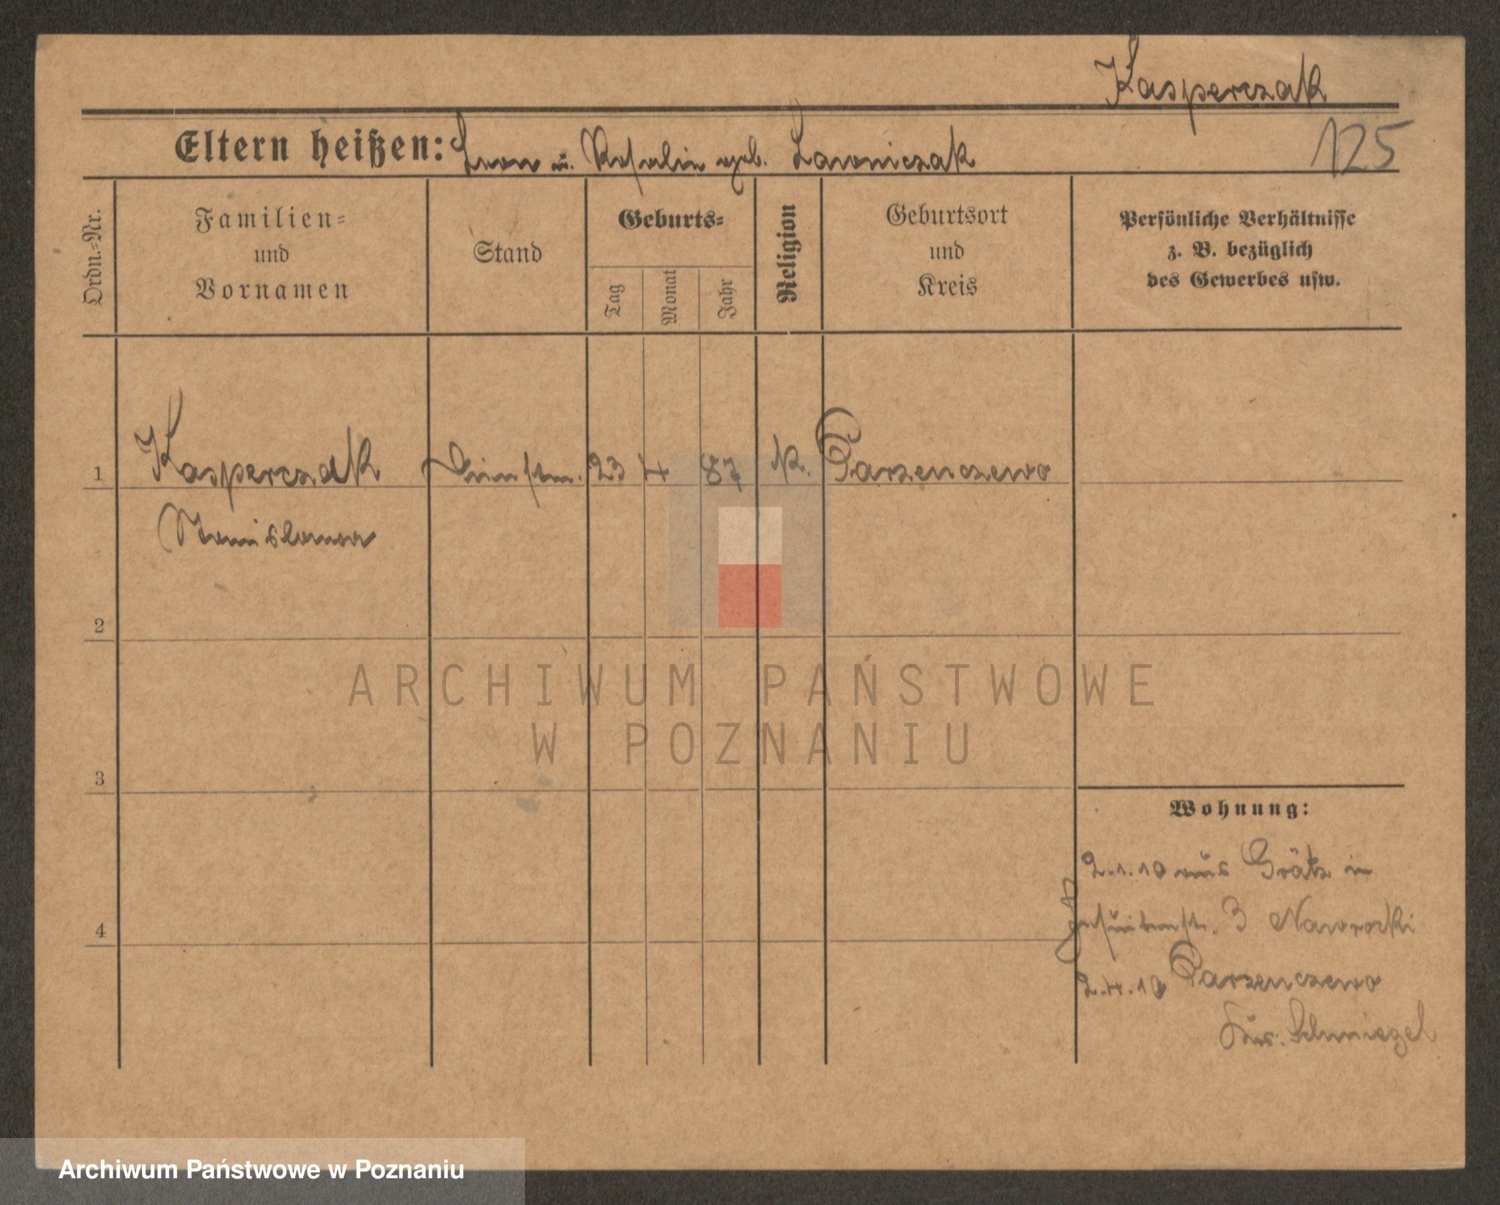 Kasperczak
125
Eltern heißen: Leon u. Rosalie geb. Ławniczak
Ordn.-Nr.
Familien-
und
Vornamen
Stand
Geburts-
Tag
Monat
Jahr
Religion
Geburtsort
und
Kreis
Persönliche Verhältnisse
z. B. bezüglich
des Gewerbes usw.
1 Kasperczak 23 4 87 K. Parzenczewo
Stanislawa
2
3
4
Wohnung:
2.1.10 aus Grätz in
Jesuitenstr. 3 Nawrocki
2.4.10 Parzenczewo
Schmiegel
ARCHIWUM PAŃSTWOWE
W POZNANIU
Archiwum Państwowe w Poznaniu